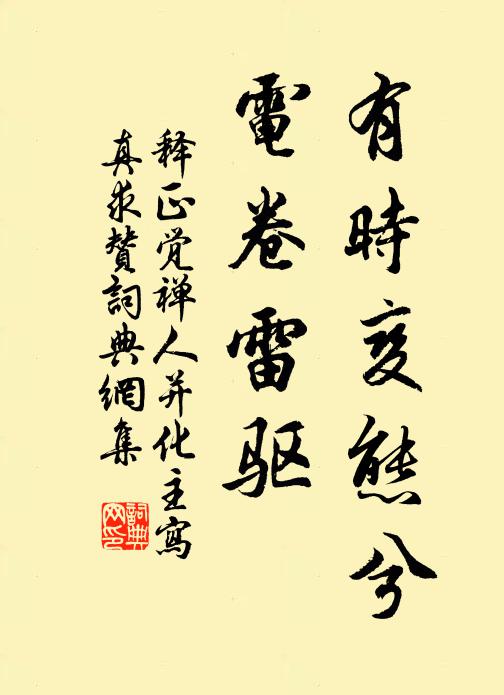 有時变態兮
電卷雷驱
释正觉禅人并化主寫
真求赞詞典網集
詞典网印